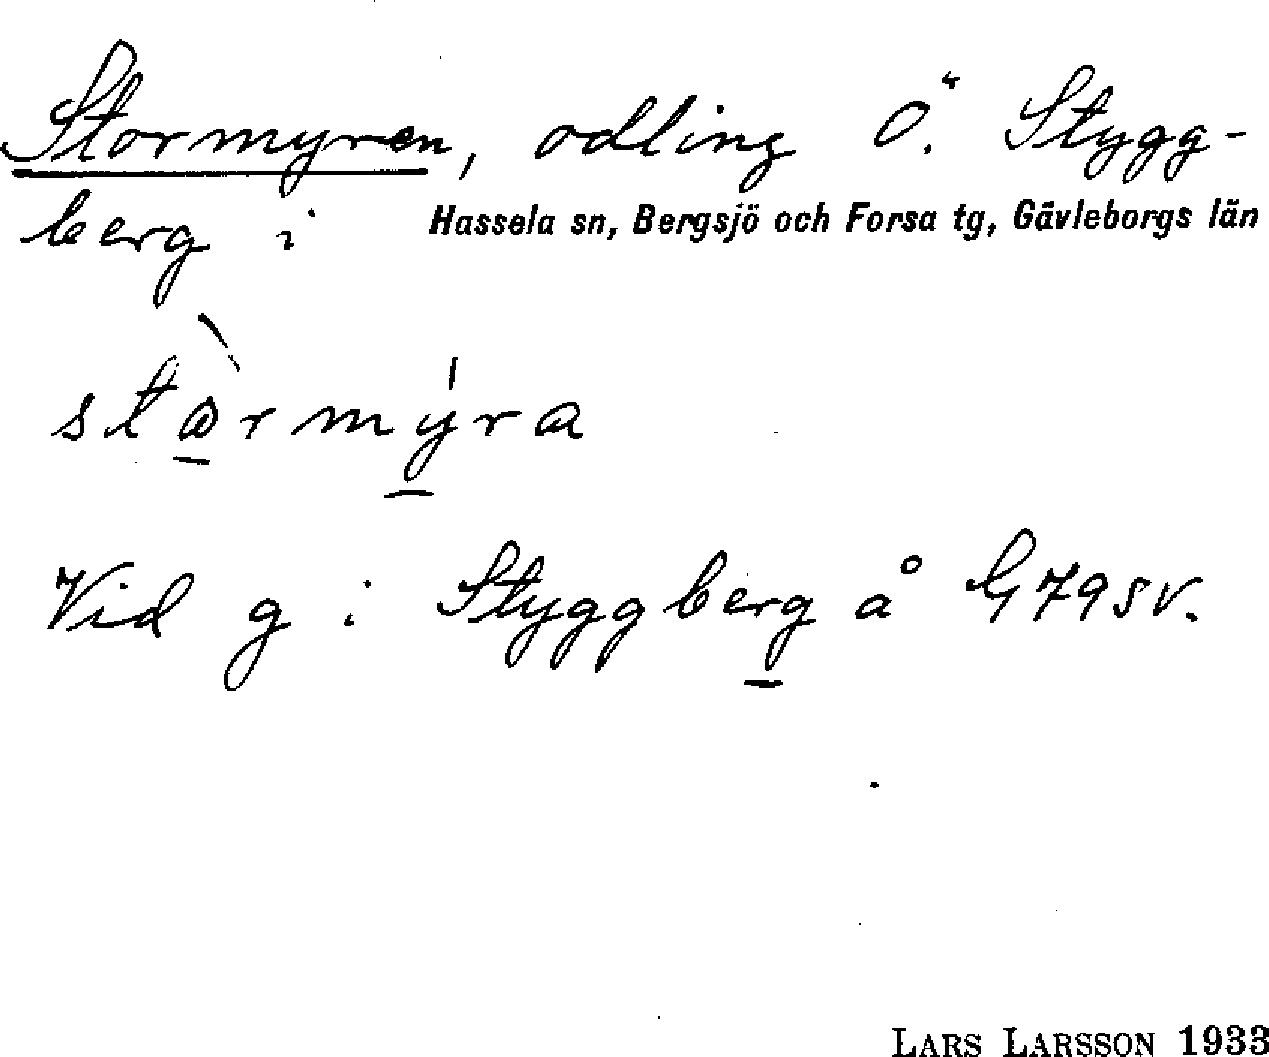 Stormyren, odling Ö. Stygg-
berg i Hassela sn, Bergsjö och Forsa tg, Gävleborgs län
stårmýra
Vid g i Styggberg å G79sv.
LARS LARSSON 1933